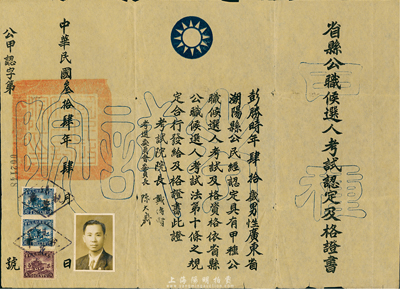 省縣公職候選人考試認定及格證書
彭勝時年肆拾歲男性廣東省
潮陽縣公民經認定具有甲種公
職候選人考試及格資格依省縣
公職候選人考試法第十條之規
定合行發給及格證書此證
考試院院長
考選委員會委員長 陳大齊
中華民國叁拾肆年肆月 日
公甲認字第 號